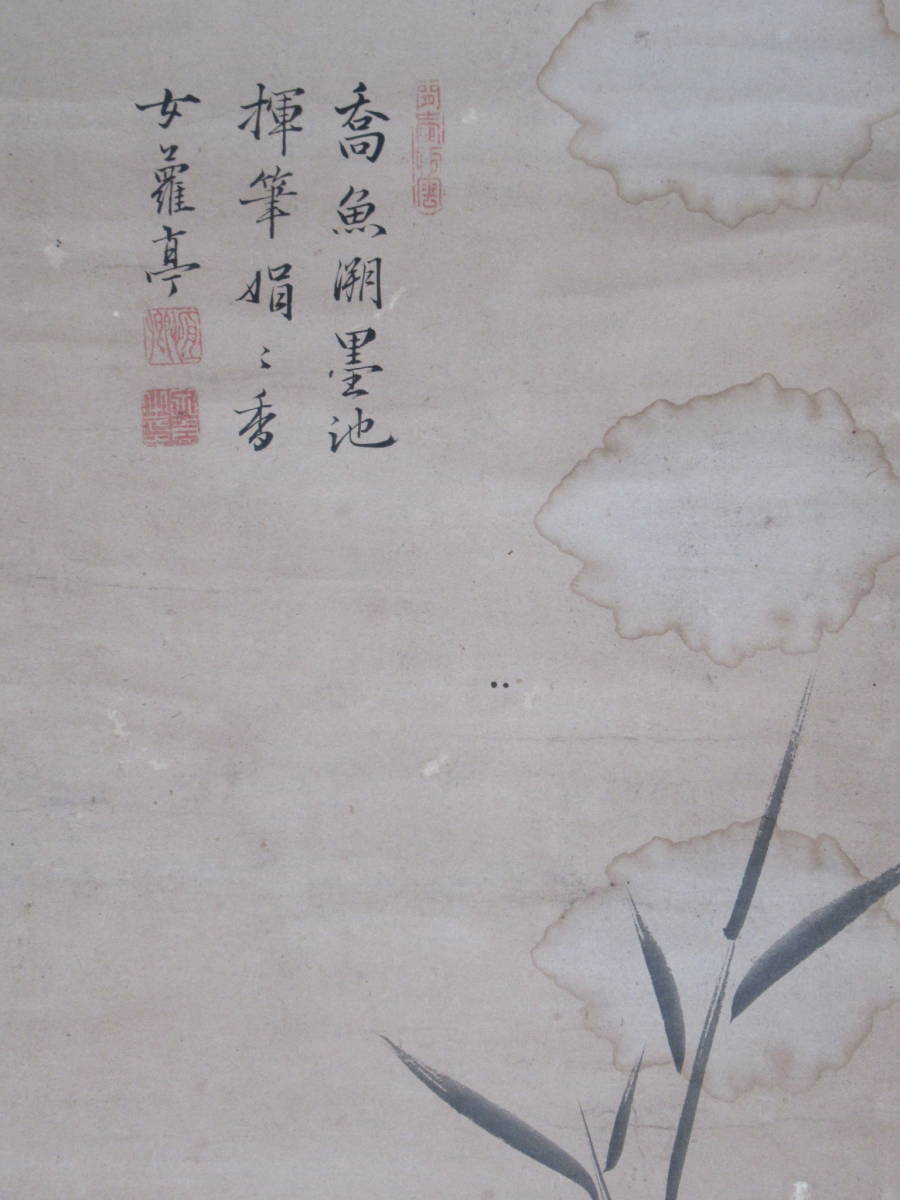 喬魚溯墨池
揮筆娟〻香
女蘿亭